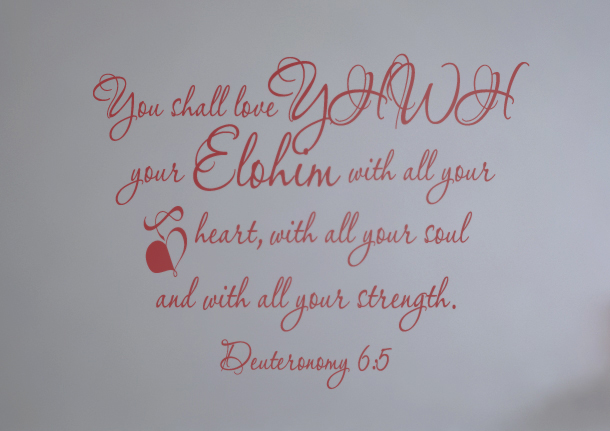 You shall love YHWH
your Elohim with all your
heart, with all your soul
and with all your strength.
Deuteronomy 6:5